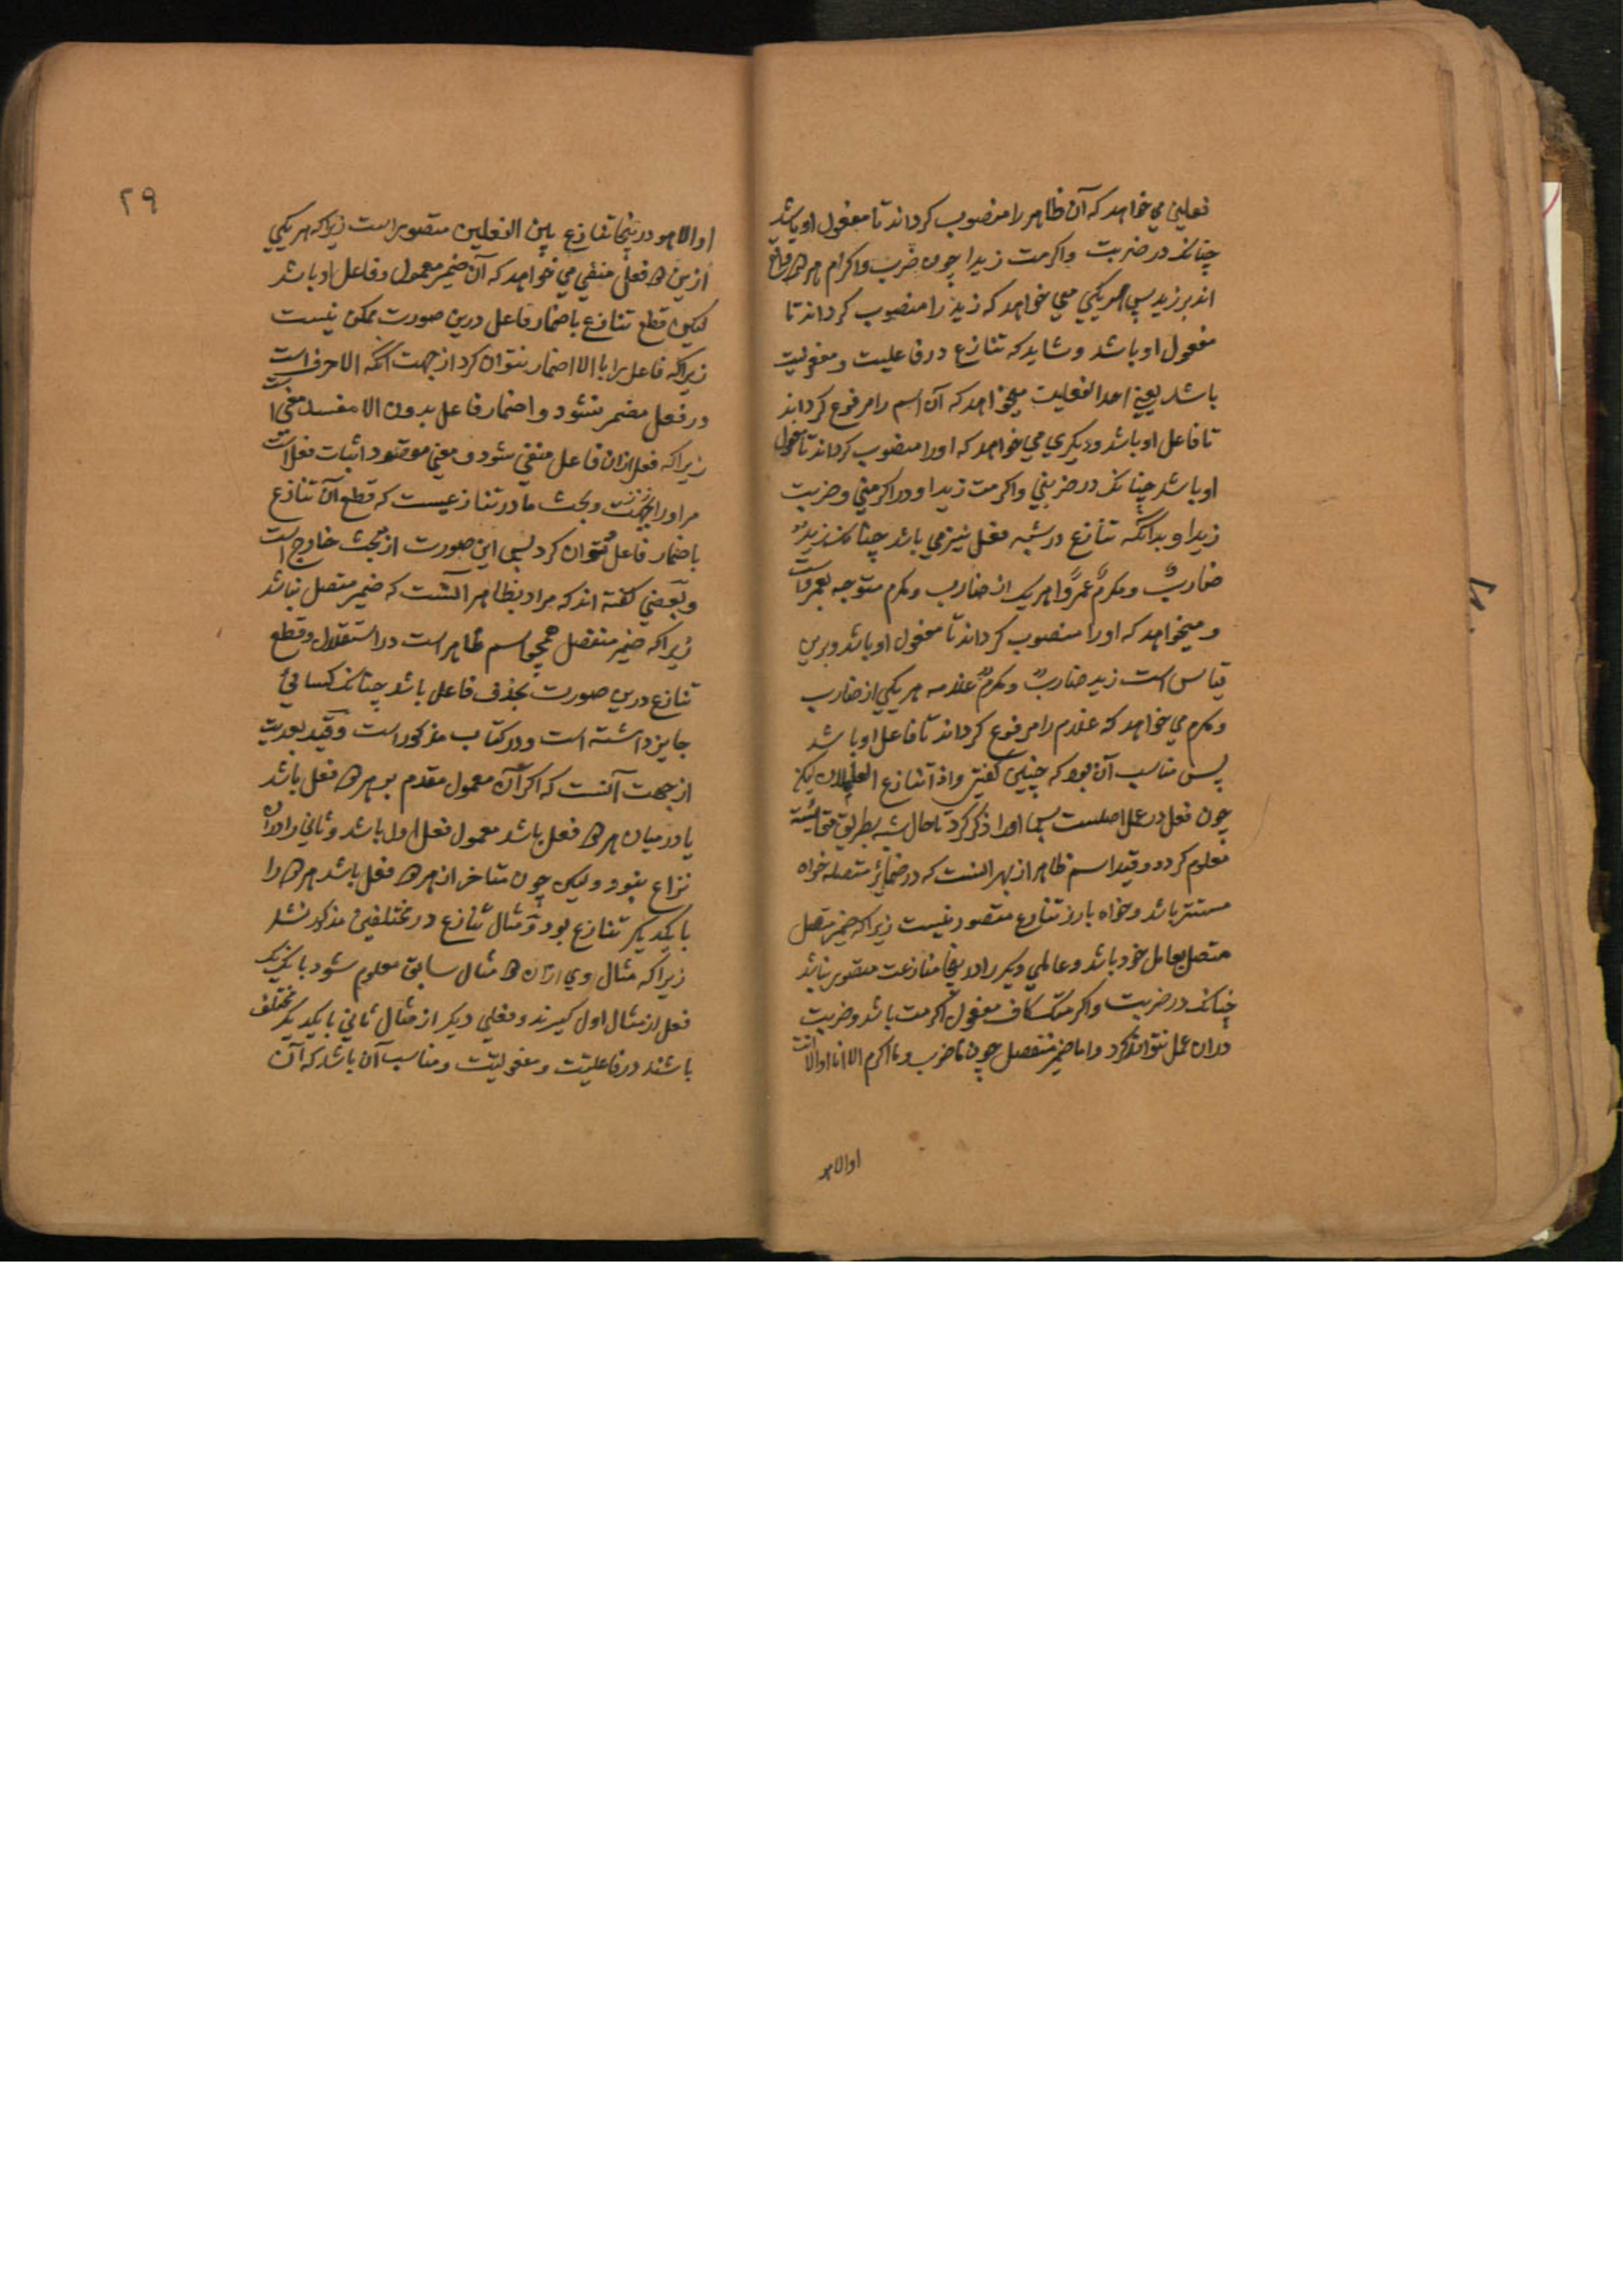 فعلین می خواهد که آن ظاهر را منصوب کرداند تا مفعول او باشد
چنانک در ضربت واکرمت زیدا چون ضرب واکرام هر دو واقع
اند بر زید پس هر یکی می خواهد که زید را منصوب کرداند تا
مفعول او باشد وشاید که تنازع در فاعلیت ومفعولیت
باشد یعنی احد الفعلین میخواهد که آن اسم را مرفوع کرداند
تا فاعل او باشد ودیکری می خواهد که او را منصوب کرداند تا مفعول
او باشد چنانک در ضربنی واکرمت زیدا ودر اکرمنی وضربت
زیدا وبدانکه تنازع در شبه فعل نیز می باشد چنانک زید
ضارب ومکرم عمروا هر یک از ضارب ومکرم متوجه بعمرو است
ومیخواهد که او را منصوب کرداند تا مفعول او باشد وبرین
قیاس است زید ضارب ومکرم غلامه هر یکی از ضارب
ومکرم می خواهد که غلام را مرفوع کرداند تا فاعل او باشد
پس مناسب آن بود که چنین کفتی واذا تنازع العاملان لیکن
چون فعل در عمل اصلست او را ذکر کرد تا حال شبه بطریق مقایسه
معلوم کردد وقید اسم ظاهر از بهر آنست که در ضمایر متصله خواه
مستتر باشد وخواه بارز تنازع متصور نیست زیراکه ضمیر متصل
متصل بعامل خود باشد وعاملی دیکر را در اینجا منازعت متصور نباشد
چنانک در ضربت واکرمتک کاف مفعول اکرمت باشد وضربت
در ان عمل نتواند کرد واما ضمیر منفصل چون ما ضرب وما اکرم الا انا او الا انت
او الا هو
۲۹
او الا هو در اینجا تنازع بین الفعلین متصور است زیراکه هر یکی
ازین دو فعل منفی می خواهد که آن ضمیر معمول وفاعل او باشد
لیکن قطع تنازع باضمار فاعل درین صورت ممکن نیست
زیراکه فاعل را با الا اضمار نتوان کرد از جهت آنکه الا حرف است
ودر فعل مضمر نشود واضمار فاعل بدون الا مفسد معنی است
زیراکه فعل ازان فاعل منفی شود ومعنی مقصود اثبات فعل است
مر او را وبحث ما در تنازعیست که قطع آن تنازع
باضمار فاعل توان کرد پس این صورت از بحث خارج است
وبعضی کفته اند که مراد بظاهر آنست که ضمیر متصل نباشد
زیراکه ضمیر منفصل همچو اسم ظاهر است در استقلال وقطع
تنازع درین صورت بحذف فاعل باشد چنانک کسائی
جایز داشته است ودر کتاب مذکور است وقید بعدیت
از جهت آنست که اکر آن معمول مقدم بر هر دو فعل باشد
یا در میان هر دو فعل باشد معمول فعل اول باشد وثانی را در ان
نزاع نبود ولیکن چون متاخر از هر دو فعل باشد هر دو را
با یکدیکر تنازع بود ومثال تنازع در مختلفین مذکور نشد
زیراکه مثال وی ازان دو مثال سابق معلوم شود
فعل از مثال اول کیرند وفعلی دیکر از مثال ثانی با یکدیکر مختلف
باشند در فاعلیت ومفعولیت ومناسب آن باشد که آن